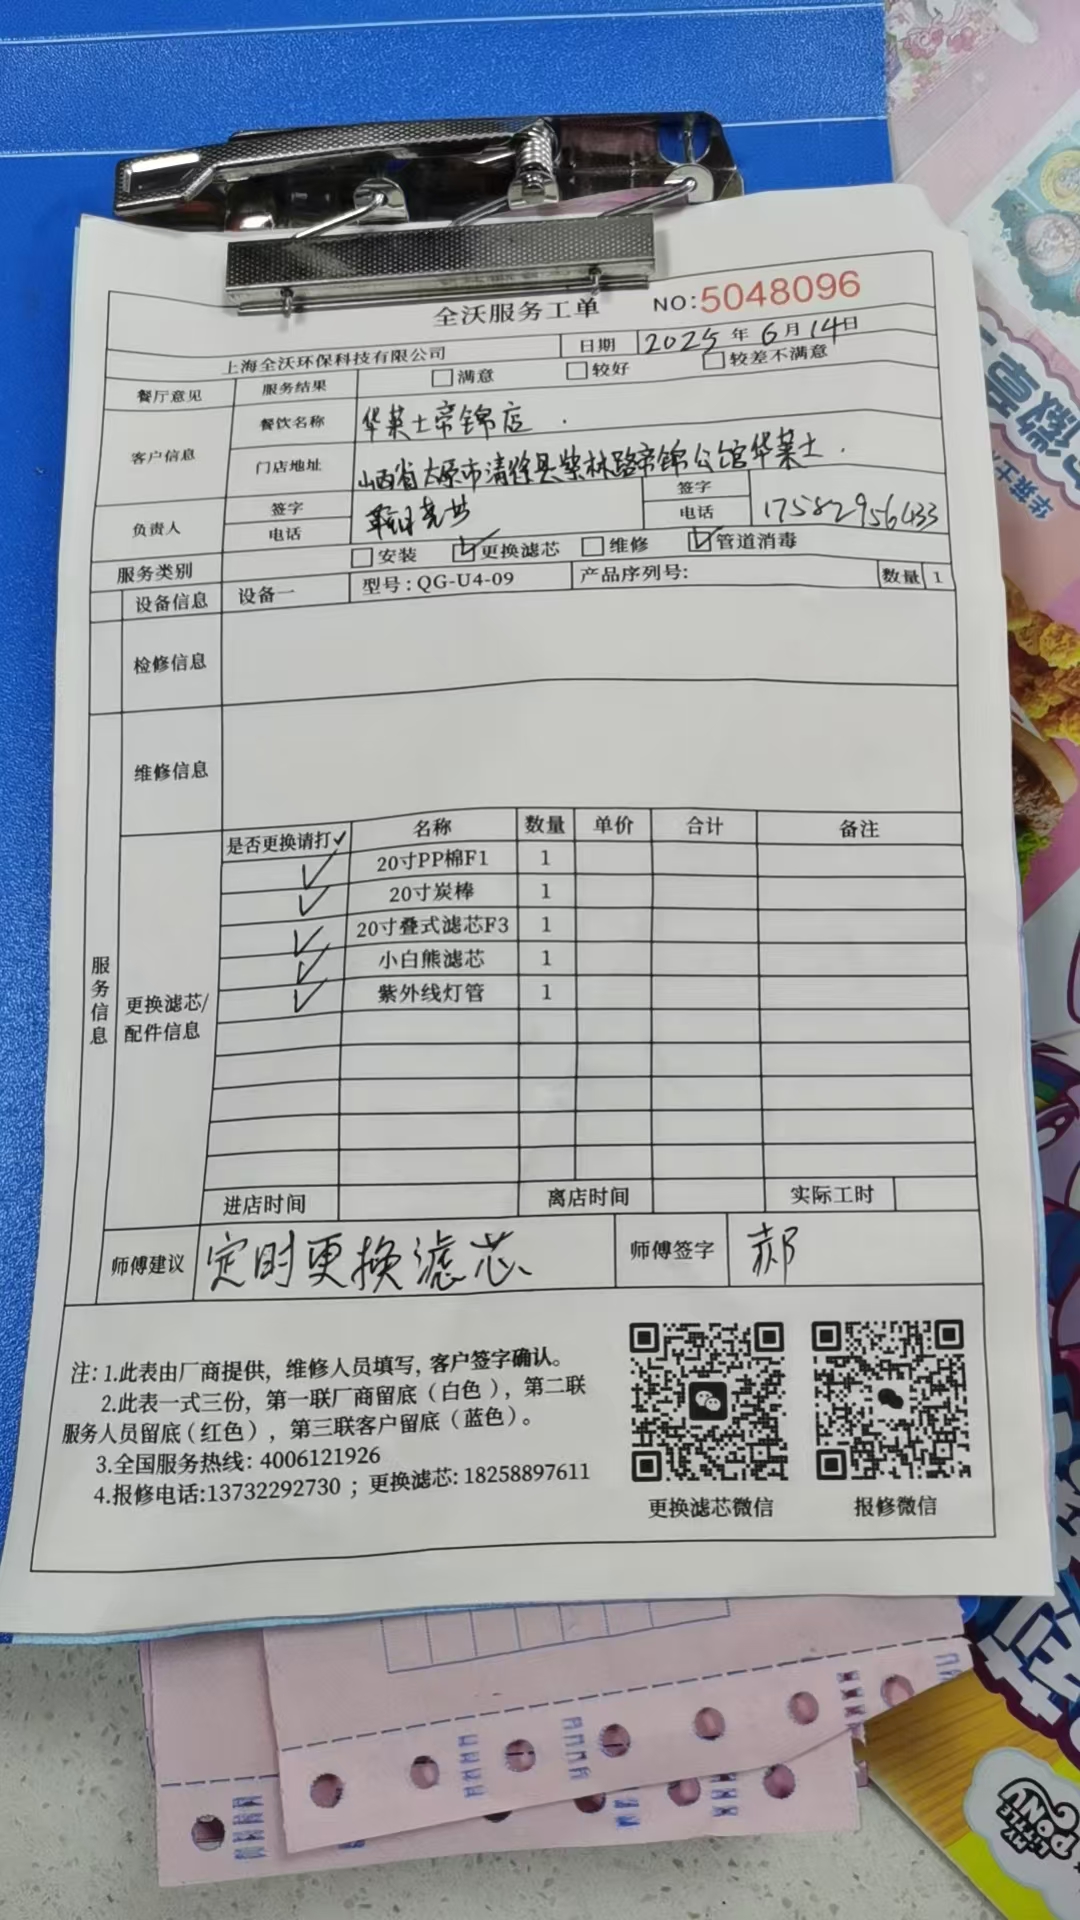 全沃服务工单 NO:5048096
上海全沃环保科技有限公司 日期 2025年6月14日
餐厅意见 服务结果 □满意 □较好 □较差不满意
客户信息 餐饮名称 华莱士帝锦店
门店地址 山西省太原市清徐县紫林路帝锦公馆华莱士
负责人 签字 签字
电话 电话 17582956433
服务类别 □安装 ☑更换滤芯 □维修 ☑管道消毒
设备信息 设备一 型号:QG-U4-09 产品序列号: 数量 1
检修信息
维修信息
服务信息
更换滤芯/配件信息
是否更换请打✓ 名称 数量 单价 合计 备注
✓ 20寸PP棉F1 1
✓ 20寸炭棒 1
✓ 20寸叠式滤芯F3 1
✓ 小白熊滤芯 1
✓ 紫外线灯管 1
进店时间 离店时间 实际工时
师傅建议 定时更换滤芯 师傅签字 郝
注: 1.此表由厂商提供, 维修人员填写, 客户签字确认。
2.此表一式三份, 第一联厂商留底 (白色), 第二联
服务人员留底 (红色), 第三联客户留底 (蓝色)。
3.全国服务热线: 4006121926
4.报修电话:13732292730 ; 更换滤芯: 18258897611
更换滤芯微信 报修微信